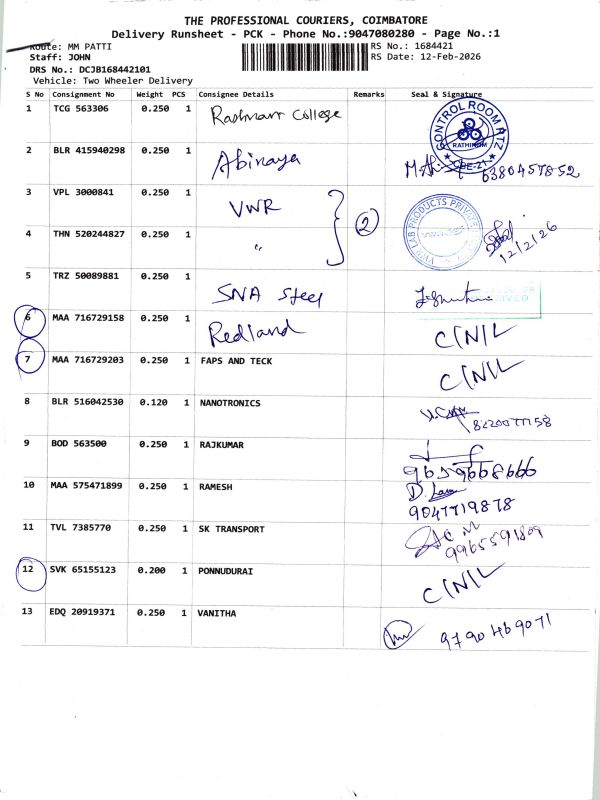 THE PROFESSIONAL COURIERS, COIMBATORE
Delivery Runsheet - PCK - Phone No.:9047080280 - Page No.:1
Route: MM PATTI
RS No.: 1684421
Staff: JOHN
RS Date: 12-Feb-2026
DRS No.: DCJB168442101
Vehicle: Two Wheeler Delivery
S No Consignment No Weight PCS Consignee Details Remarks Seal & Signature
1 TCG 563306 0.250 1 College
CONTROL ROOM RTZ
RATHINUM
CBE-21
2 BLR 415940298 0.250 1 Abinaya 6380457852
3 VPL 3000841 0.250 1 VWR
2
VWR LAB PRODUCTS PRIVATE
12/2/26
4 THN 520244827 0.250 1 "
5 TRZ 50089881 0.250 1 SNA Steel
6 MAA 716729158 0.250 1 Redland C/N/L
7 MAA 716729203 0.250 1 FAPS AND TECK C/N/L
8 BLR 516042530 0.120 1 NANOTRONICS 8220077158
9 BOD 563500 0.250 1 RAJKUMAR 9659668666
10 MAA 575471899 0.250 1 RAMESH 9047719878
11 TVL 7385770 0.250 1 SK TRANSPORT 9965591809
12 SVK 65155123 0.200 1 PONNUDURAI C/N/L
13 EDQ 20919371 0.250 1 VANITHA 9790469071